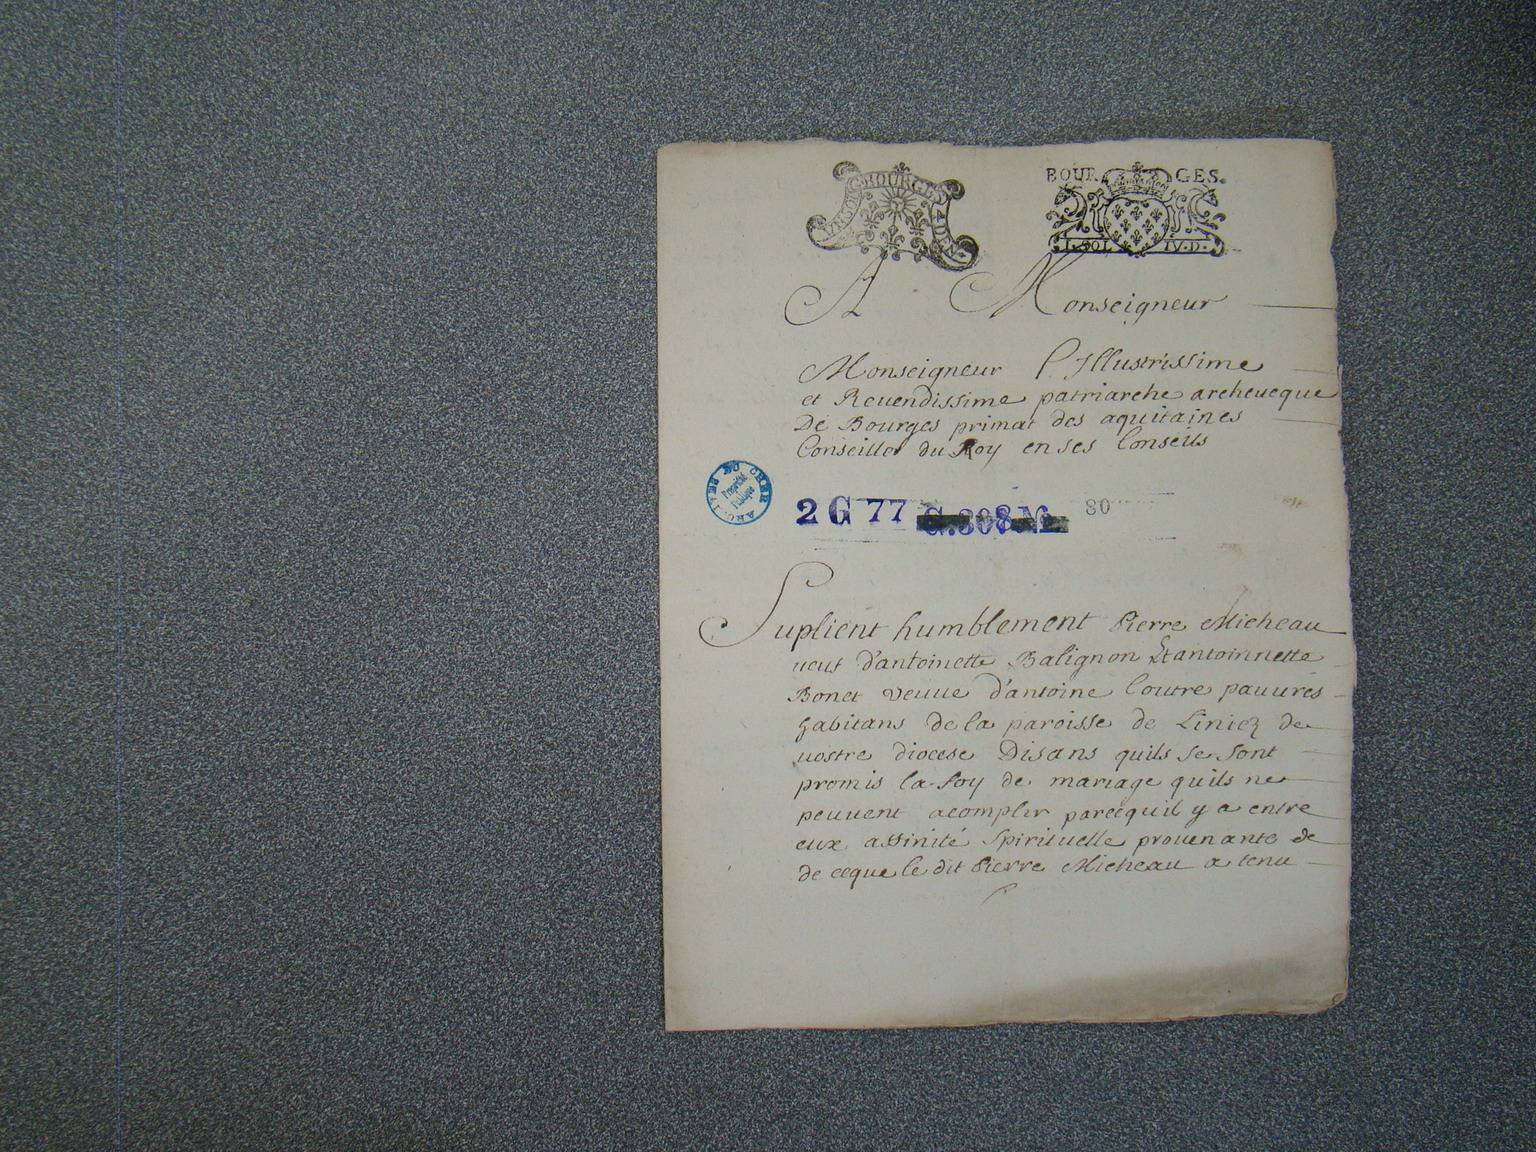 BOURGES
BOURGES.
1. SOL IV. D.
A Monseigneur
Monseigneur l'Illustrissime
et Reuendissime patriarche archeueque
De Bourges primat des aquitaines
Conseiller du Roy en ses Conseils
ARCHIVES DU CHER
Propriété Publique
2 G 77 G.308 M 80
Suplient humblement Pierre Micheau
ueuf d'antoinette Balignon Et antoinnette
Bonet veuue d'antoine Coutre pauures
habitans de la paroisse de Liniez de
uostre diocese Disans quils se sont
promis la foy de mariage quils ne
peuuent acomplir parcequil y a entre
eux affinité spirituelle prouenante de
de ceque le dit Pierre Micheau a tenu